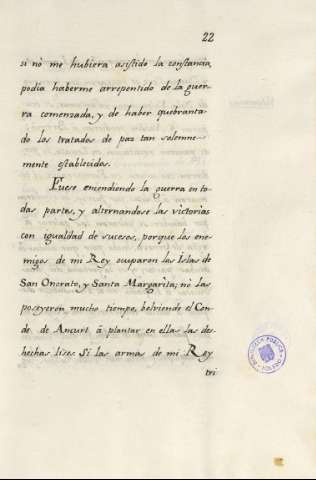 22
si no me hubiera asistido la constancia,
podia haberme arrepentido de la guer-
ra comenzada, y de haber quebranta-
do los tratados de paz tan solemne-
mente establecidos.
Fuese encendiendo la guerra en to-
das partes, y alternandose las victorias
con igualdad de sucesos, porque los ene-
migos de mi Rey ocuparon las Islas de
San Onorato, y Santa Margarita; no las
poseyeron mucho tiempo, bolviendo el Con-
de de Ancurt â plantar en ellas las des-
hechas lises. Si las armas de mi Rey
tri
BIBLIOTECA PUBLICA
TOLEDO